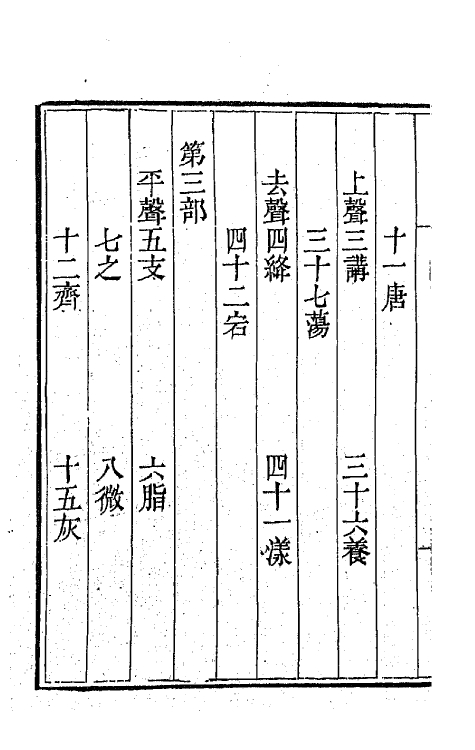 十一唐
上聲三講　三十六養
三十七蕩
去聲四絳　四十一漾
四十二宕
第三部
平聲五支　六脂
七之　八微
十二齊　十五灰